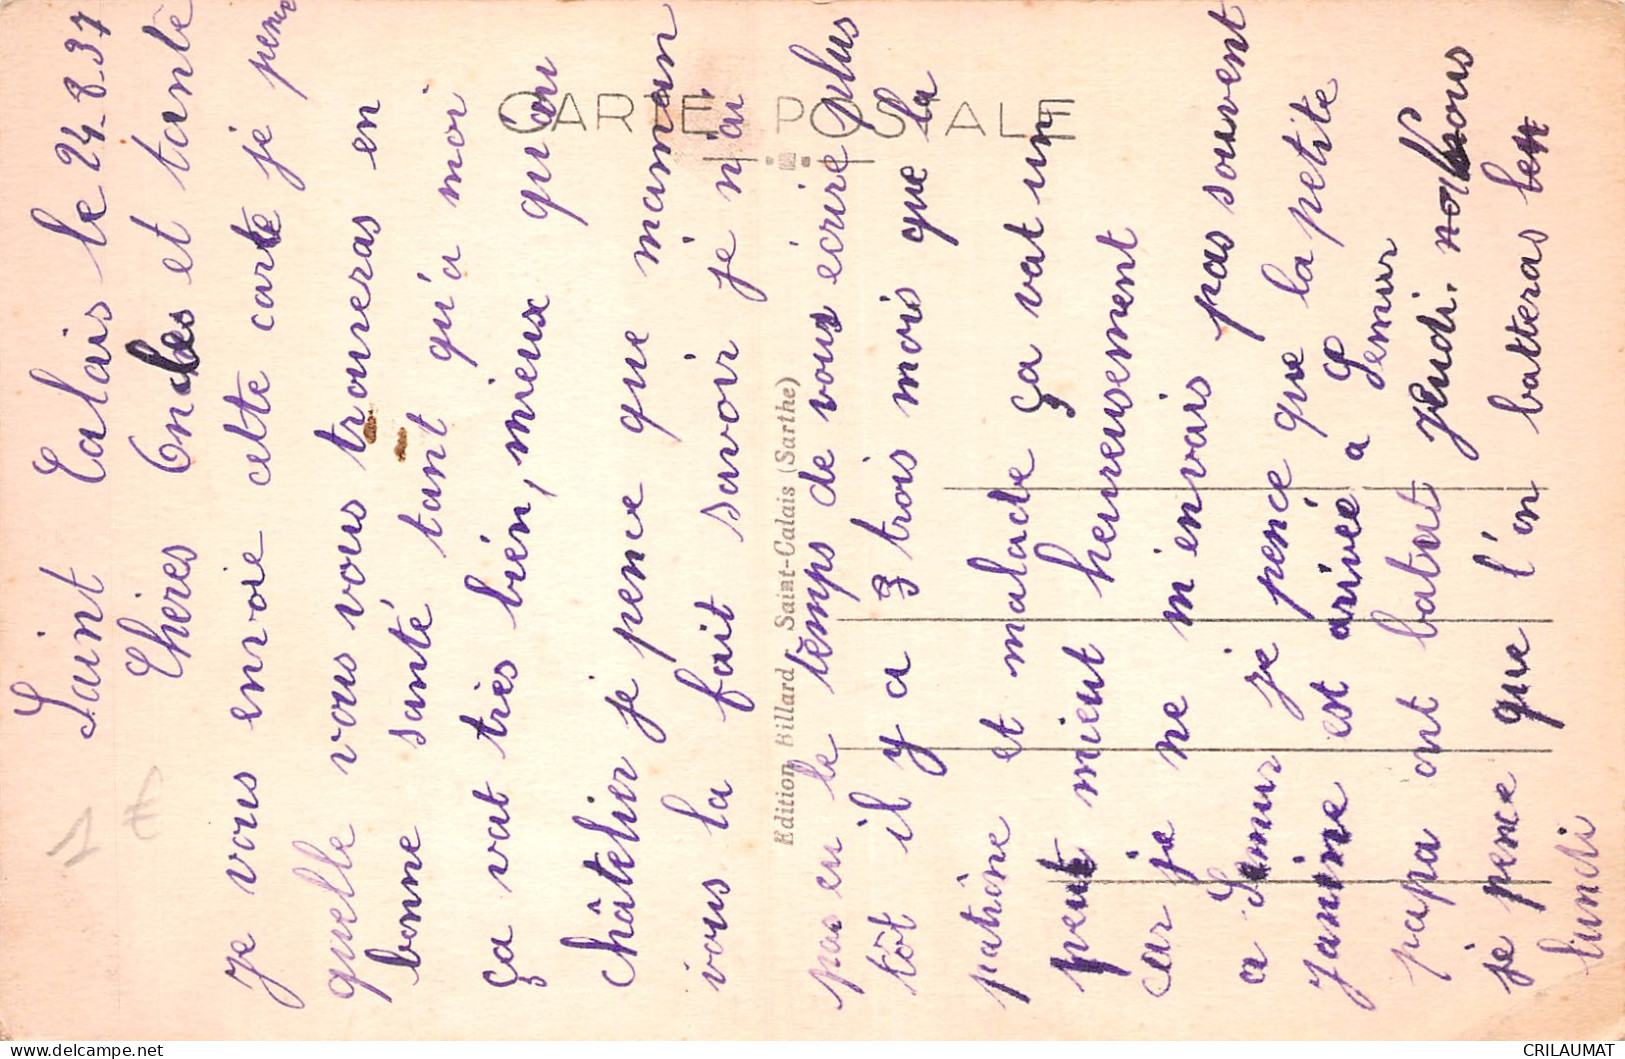 Saint Calais le 24-8-37
Chères Oncles et tante
je vous envoie cette carte je pense
quelle vous vous trouveras en
bonne santé tant qu'a moi
ça vat très bien, mieux qu'au
châtelier je pence que maman
vous la fait savoir je n'ai
pas eu le temps de vous écrire plus
tôt il y a 3 trois mois que la
patrône et malade ça vat un
peut mieut heureusement
car je ne m'envais pas souvent
a Semur je pence que la petite
Janine est arivée a Semur
papa ont batut jeudi. nous
je pence que l'on batteras
lundi
CARTE POSTALE
Edition Billard, Saint-Calais (Sarthe)
1 €
CRILAUMAT